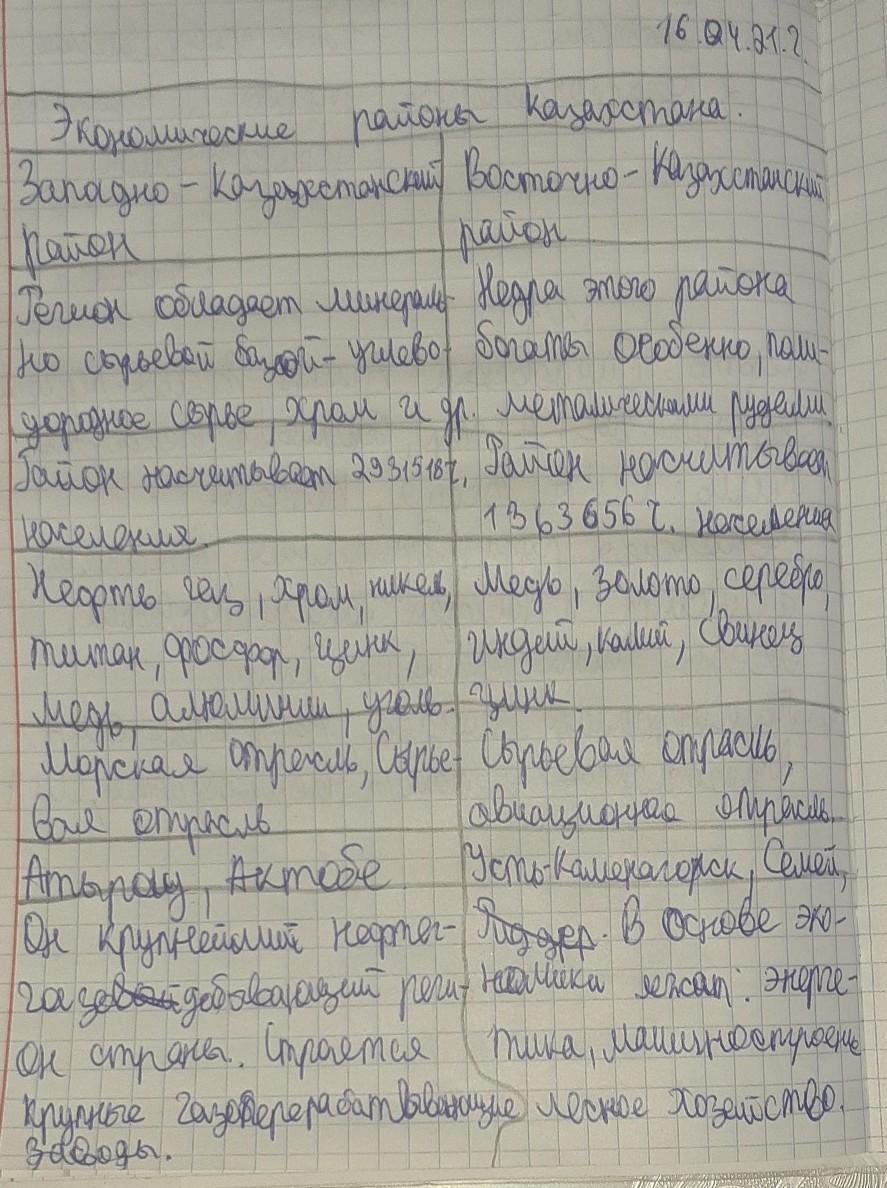 16.04.21.г.
Экономические районы Казахстана.
Западно-Казахстанский
район
Восточно-Казахстанский
район
Регион обладает минераль-
но сырьевой базой-углево-
дородное сырье, хром и др.
Недра этого района
богаты особенно, поли-
металическими рудами.
Район насчитывает 2931518ч,
населения.
Район насчитывает
1363656 ч. населения
Нефть газ, хром, никель,
титан, фосфор, цинк,
медь, алюминий, уголь.
Медь, золото, серебро,
индий, калий, свинец
цинк.
Морская отрасль, Сырье-
вая отрасль
Сырьевая отрасль,
авиационная отрасль.
Атырау, Актобе
Усть-Каменагорск, Семей,
Он крупнейший нефтег-
газодобывающий реги-
он страны. Строется
крупные газоперерабатывающие
заводы.
Риддер. В основе эко-
номики лежат: энерге-
тика, машиностроение
лесное хозейство.